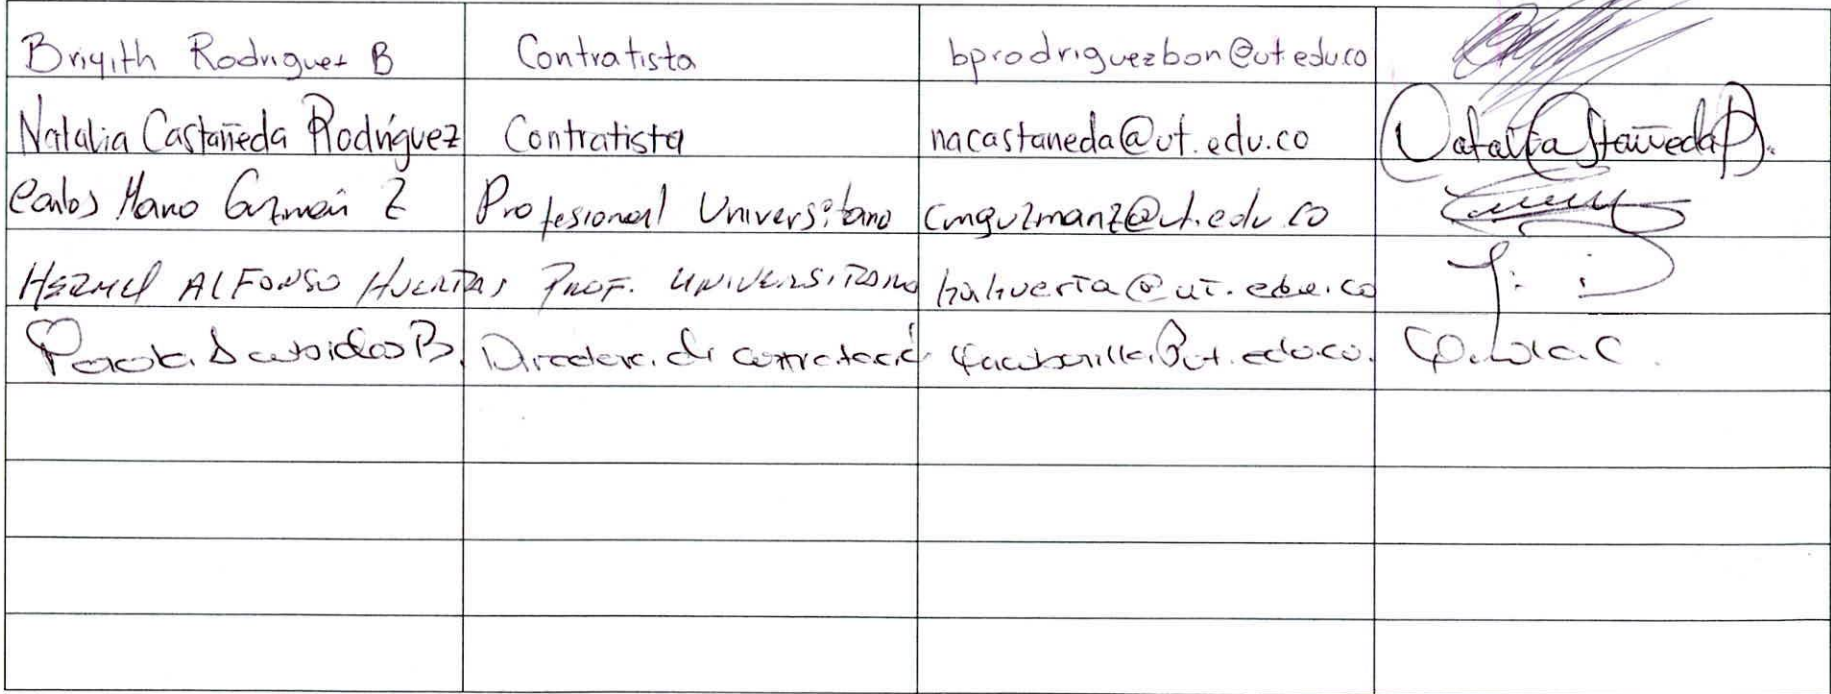 Briyith Rodriguez B Contratista bprodriguezbon@ut.edu.co
Natalia Castañeda Rodríguez Contratista nacastaneda@ut.edu.co Natalia Castañeda R.
Carlos Mario Guzmán Z Profesional Universitario cmguzmanz@ut.edu.co
HERMEL ALFONSO HUERTAS PROF. UNIVERSITARIO hahuerta@ut.edu.co
Paola B. Directora de contratació